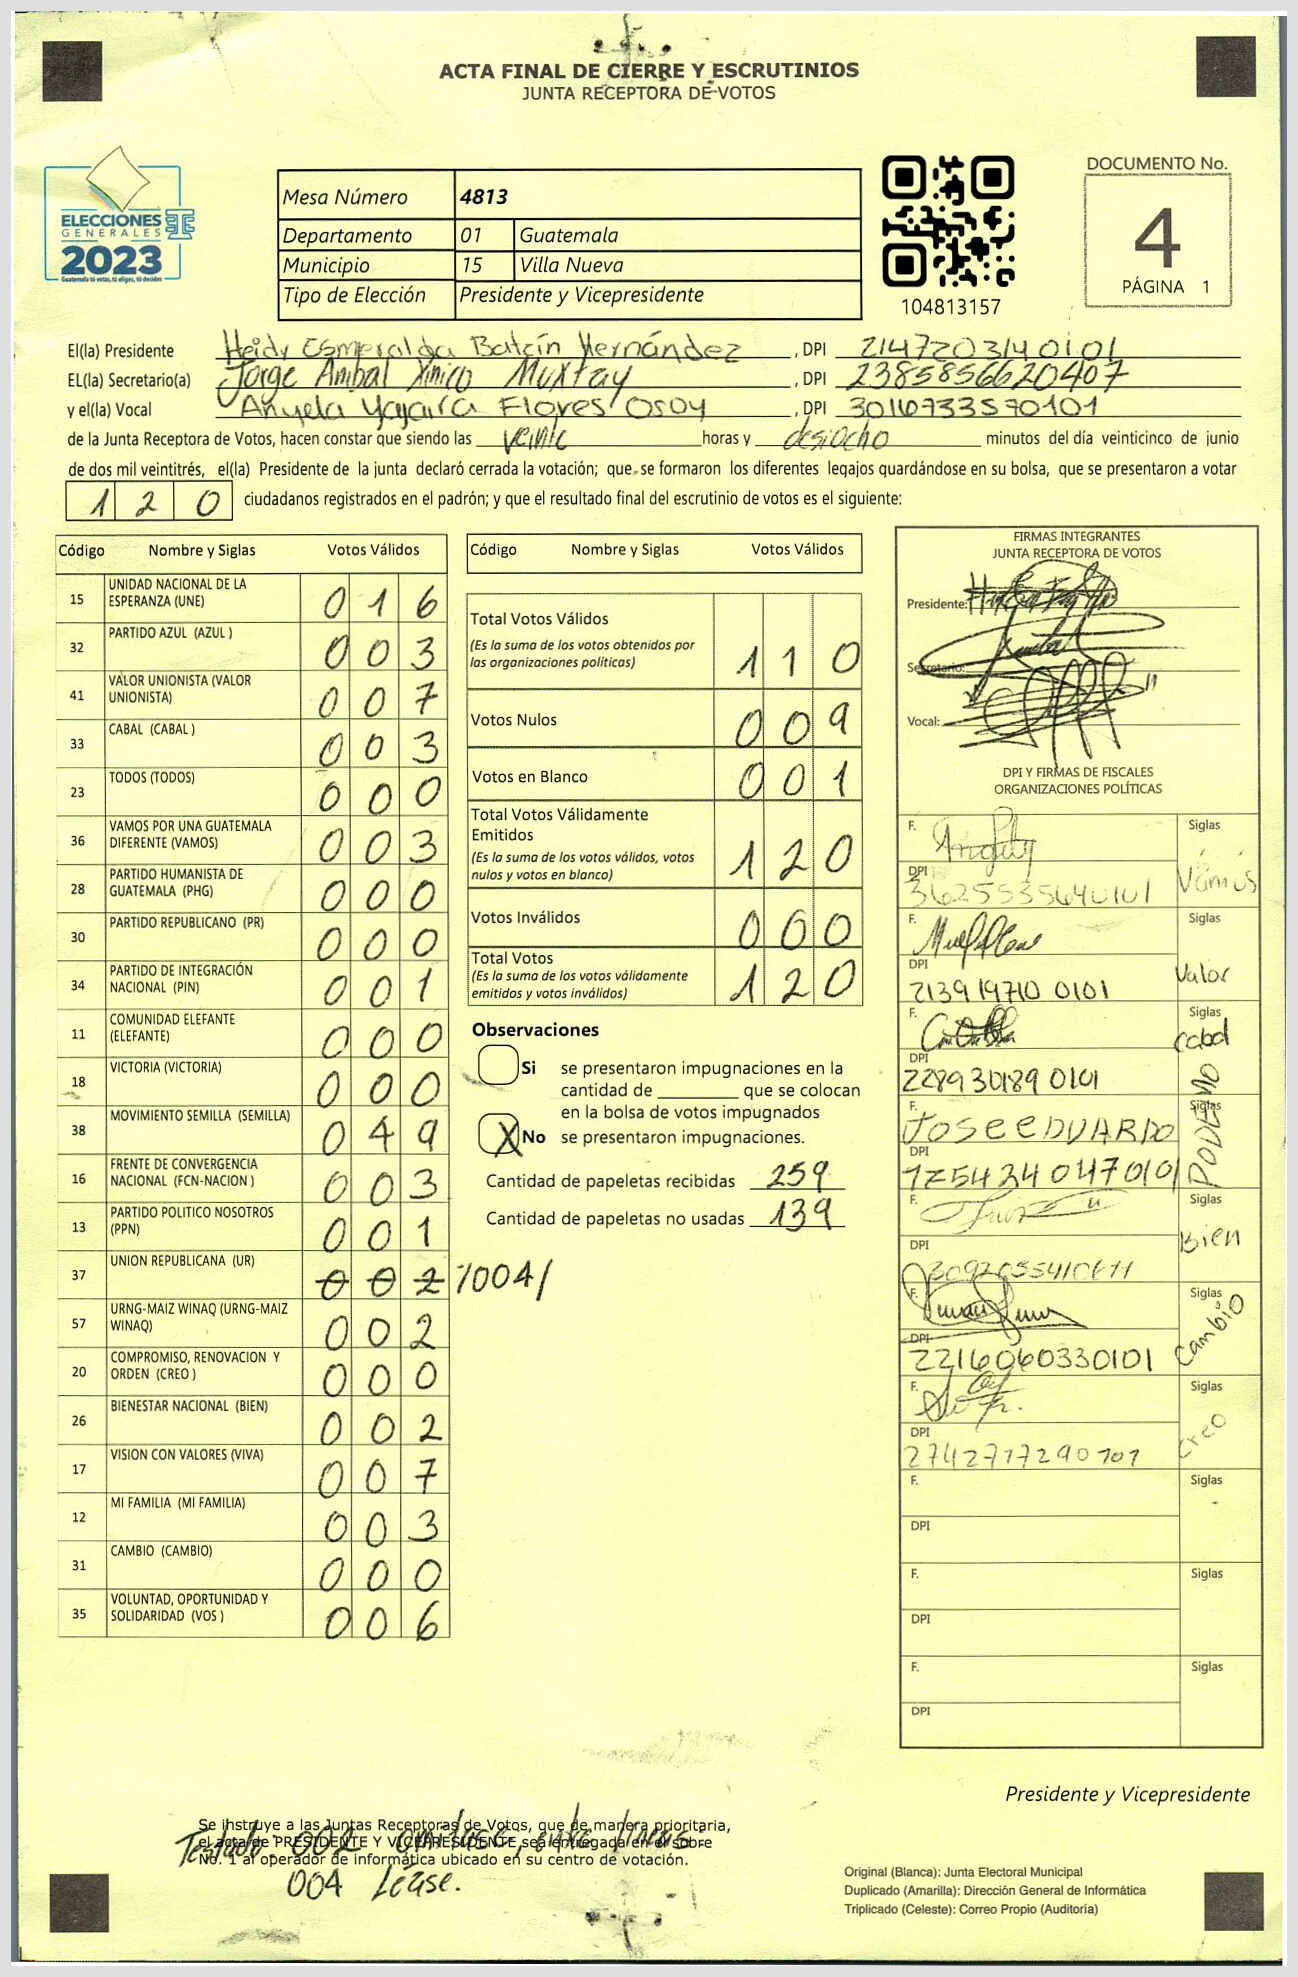 ACTA FINAL DE CIERRE Y ESCRUTINIOS
JUNTA RECEPTORA DE VOTOS
ELECCIONES
GENERALES
2023
Guatemala tú votas, tú eliges, tú decides
Mesa Número 4813
Departamento 01 Guatemala
Municipio 15 Villa Nueva
Tipo de Elección Presidente y Vicepresidente
104813157
DOCUMENTO No.
4
PÁGINA 1
El(la) Presidente Heidy Esmeralda Batzín Hernández, DPI 2147203140101
EL(la) Secretario(a) Jorge Anibal Xinico Muxtay, DPI 2385856620407
y el(la) Vocal Anyela Yajaira Flores Osoy, DPI 3016733570101
de la Junta Receptora de Votos, hacen constar que siendo las veinte horas y desiocho minutos del día veinticinco de junio
de dos mil veintitrés, el(la) Presidente de la junta declaró cerrada la votación; que se formaron los diferentes legajos quardándose en su bolsa, que se presentaron a votar
120 ciudadanos registrados en el padrón; y que el resultado final del escrutinio de votos es el siguiente:
Código Nombre y Siglas Votos Válidos
15 UNIDAD NACIONAL DE LA ESPERANZA (UNE) 016
32 PARTIDO AZUL (AZUL ) 003
41 VALOR UNIONISTA (VALOR UNIONISTA) 007
33 CABAL (CABAL ) 003
23 TODOS (TODOS) 000
36 VAMOS POR UNA GUATEMALA DIFERENTE (VAMOS) 003
28 PARTIDO HUMANISTA DE GUATEMALA (PHG) 000
30 PARTIDO REPUBLICANO (PR) 000
34 PARTIDO DE INTEGRACIÓN NACIONAL (PIN) 001
11 COMUNIDAD ELEFANTE (ELEFANTE) 000
18 VICTORIA (VICTORIA) 000
38 MOVIMIENTO SEMILLA (SEMILLA) 049
16 FRENTE DE CONVERGENCIA NACIONAL (FCN-NACION ) 003
13 PARTIDO POLITICO NOSOTROS (PPN) 001
37 UNION REPUBLICANA (UR) 002 /004/
57 URNG-MAIZ WINAQ (URNG-MAIZ WINAQ) 002
20 COMPROMISO, RENOVACION Y ORDEN (CREO ) 000
26 BIENESTAR NACIONAL (BIEN) 002
17 VISION CON VALORES (VIVA) 007
12 MI FAMILIA (MI FAMILIA) 003
31 CAMBIO (CAMBIO) 000
35 VOLUNTAD, OPORTUNIDAD Y SOLIDARIDAD (VOS ) 006
Código Nombre y Siglas Votos Válidos
Total Votos Válidos
(Es la suma de los votos obtenidos por
las organizaciones políticas) 110
Votos Nulos 009
Votos en Blanco 001
Total Votos Válidamente
Emitidos
(Es la suma de los votos válidos, votos
nulos y votos en blanco) 120
Votos Inválidos 000
Total Votos
(Es la suma de los votos válidamente
emitidos y votos inválidos) 120
Observaciones
Si se presentaron impugnaciones en la
cantidad de ________ que se colocan
en la bolsa de votos impugnados
X No se presentaron impugnaciones.
Cantidad de papeletas recibidas 259
Cantidad de papeletas no usadas 139
FIRMAS INTEGRANTES
JUNTA RECEPTORA DE VOTOS
Presidente:
Secretario:
Vocal:
DPI Y FIRMAS DE FISCALES
ORGANIZACIONES POLÍTICAS
F. Siglas
DPI 3625535640101 Vamos
F. Siglas
DPI 2139197100101 Valor
F. Siglas
DPI 2289301890101 Cabal
F. JOSE EDUARDO Siglas
DPI 12542340470101 PODEMO
F. Siglas
DPI Bien
F. Siglas
DPI 2216060330101 Cambio
F. Siglas
DPI 2742717290101 Creo
F. Siglas
DPI
F. Siglas
DPI
F. Siglas
DPI
Presidente y Vicepresidente
Se instruye a las Juntas Receptoras de Votos, que de manera prioritaria,
el acta de PRESIDENTE Y VICEPRESIDENTE sea entregada en el sobre
No. 1 al operador de informática ubicado en su centro de votación.
Testado: 002 omitase, entre lineas:
004 Léase.
Original (Blanca): Junta Electoral Municipal
Duplicado (Amarilla): Dirección General de Informática
Triplicado (Celeste): Correo Propio (Auditoría)